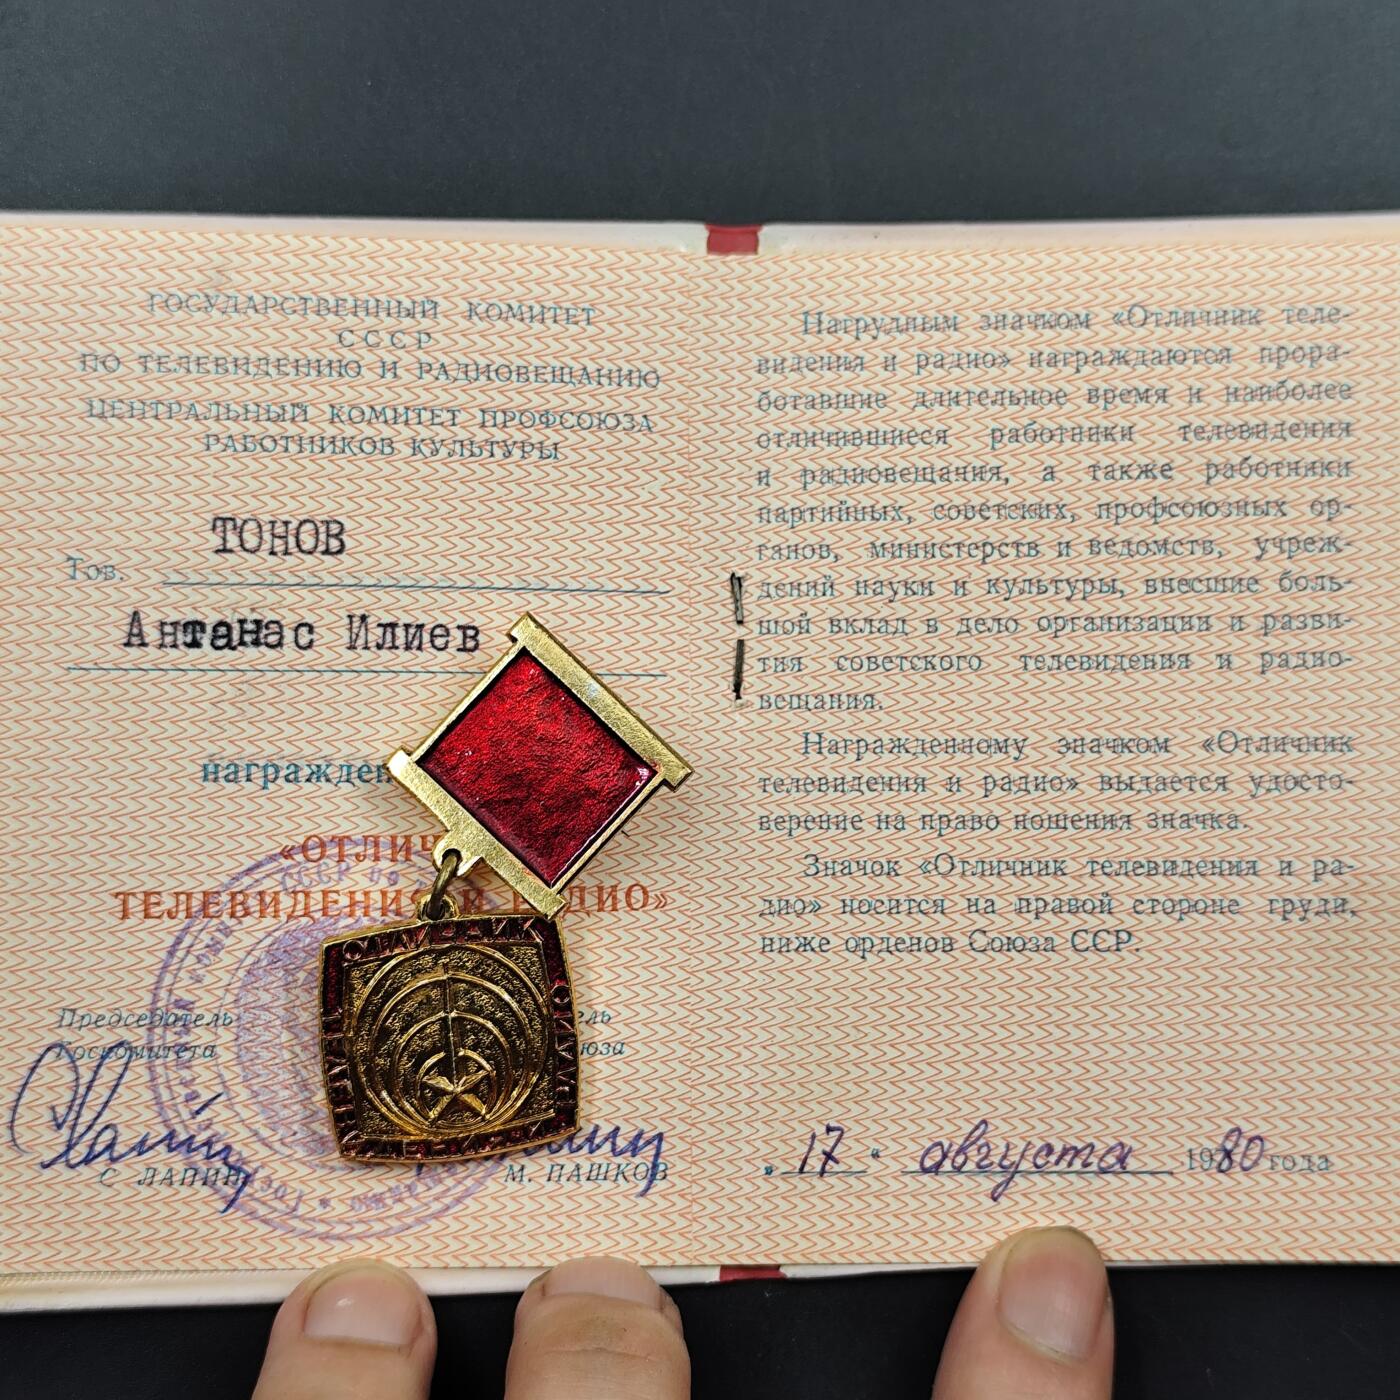 ГОСУДАРСТВЕННЫЙ КОМИТЕТ
СССР
ПО ТЕЛЕВИДЕНИЮ И РАДИОВЕЩАНИЮ
ЦЕНТРАЛЬНЫЙ КОМИТЕТ ПРОФСОЮЗА
РАБОТНИКОВ КУЛЬТУРЫ
ТОНОВ
Тов.
Антанас Илиев
награжден
«ОТЛИЧ
ТЕЛЕВИДЕНИЯ И РАДИО»
Председатель
Госкомитета
С ЛАПИН
М. ПАШКОВ
ОТЛИЧНИК
Нагрудным значком «Отличник теле-
видения и радио» награждаются прора-
ботавшие длительное время и наиболее
отличившиеся работники телевидения
и радиовещания, а также работники
партийных, советских, профсоюзных ор-
ганов, министерств и ведомств, учреж-
дений науки и культуры, внесшие боль-
шой вклад в дело организации и разви-
тия советского телевидения и радио-
вещания.
Награжденному значком «Отличник
телевидения и радио» выдается удосто-
верение на право ношения значка.
Значок «Отличник телевидения и ра-
дио» носится на правой стороне груди,
ниже орденов Союза ССР.
„17“ августа 1980 года